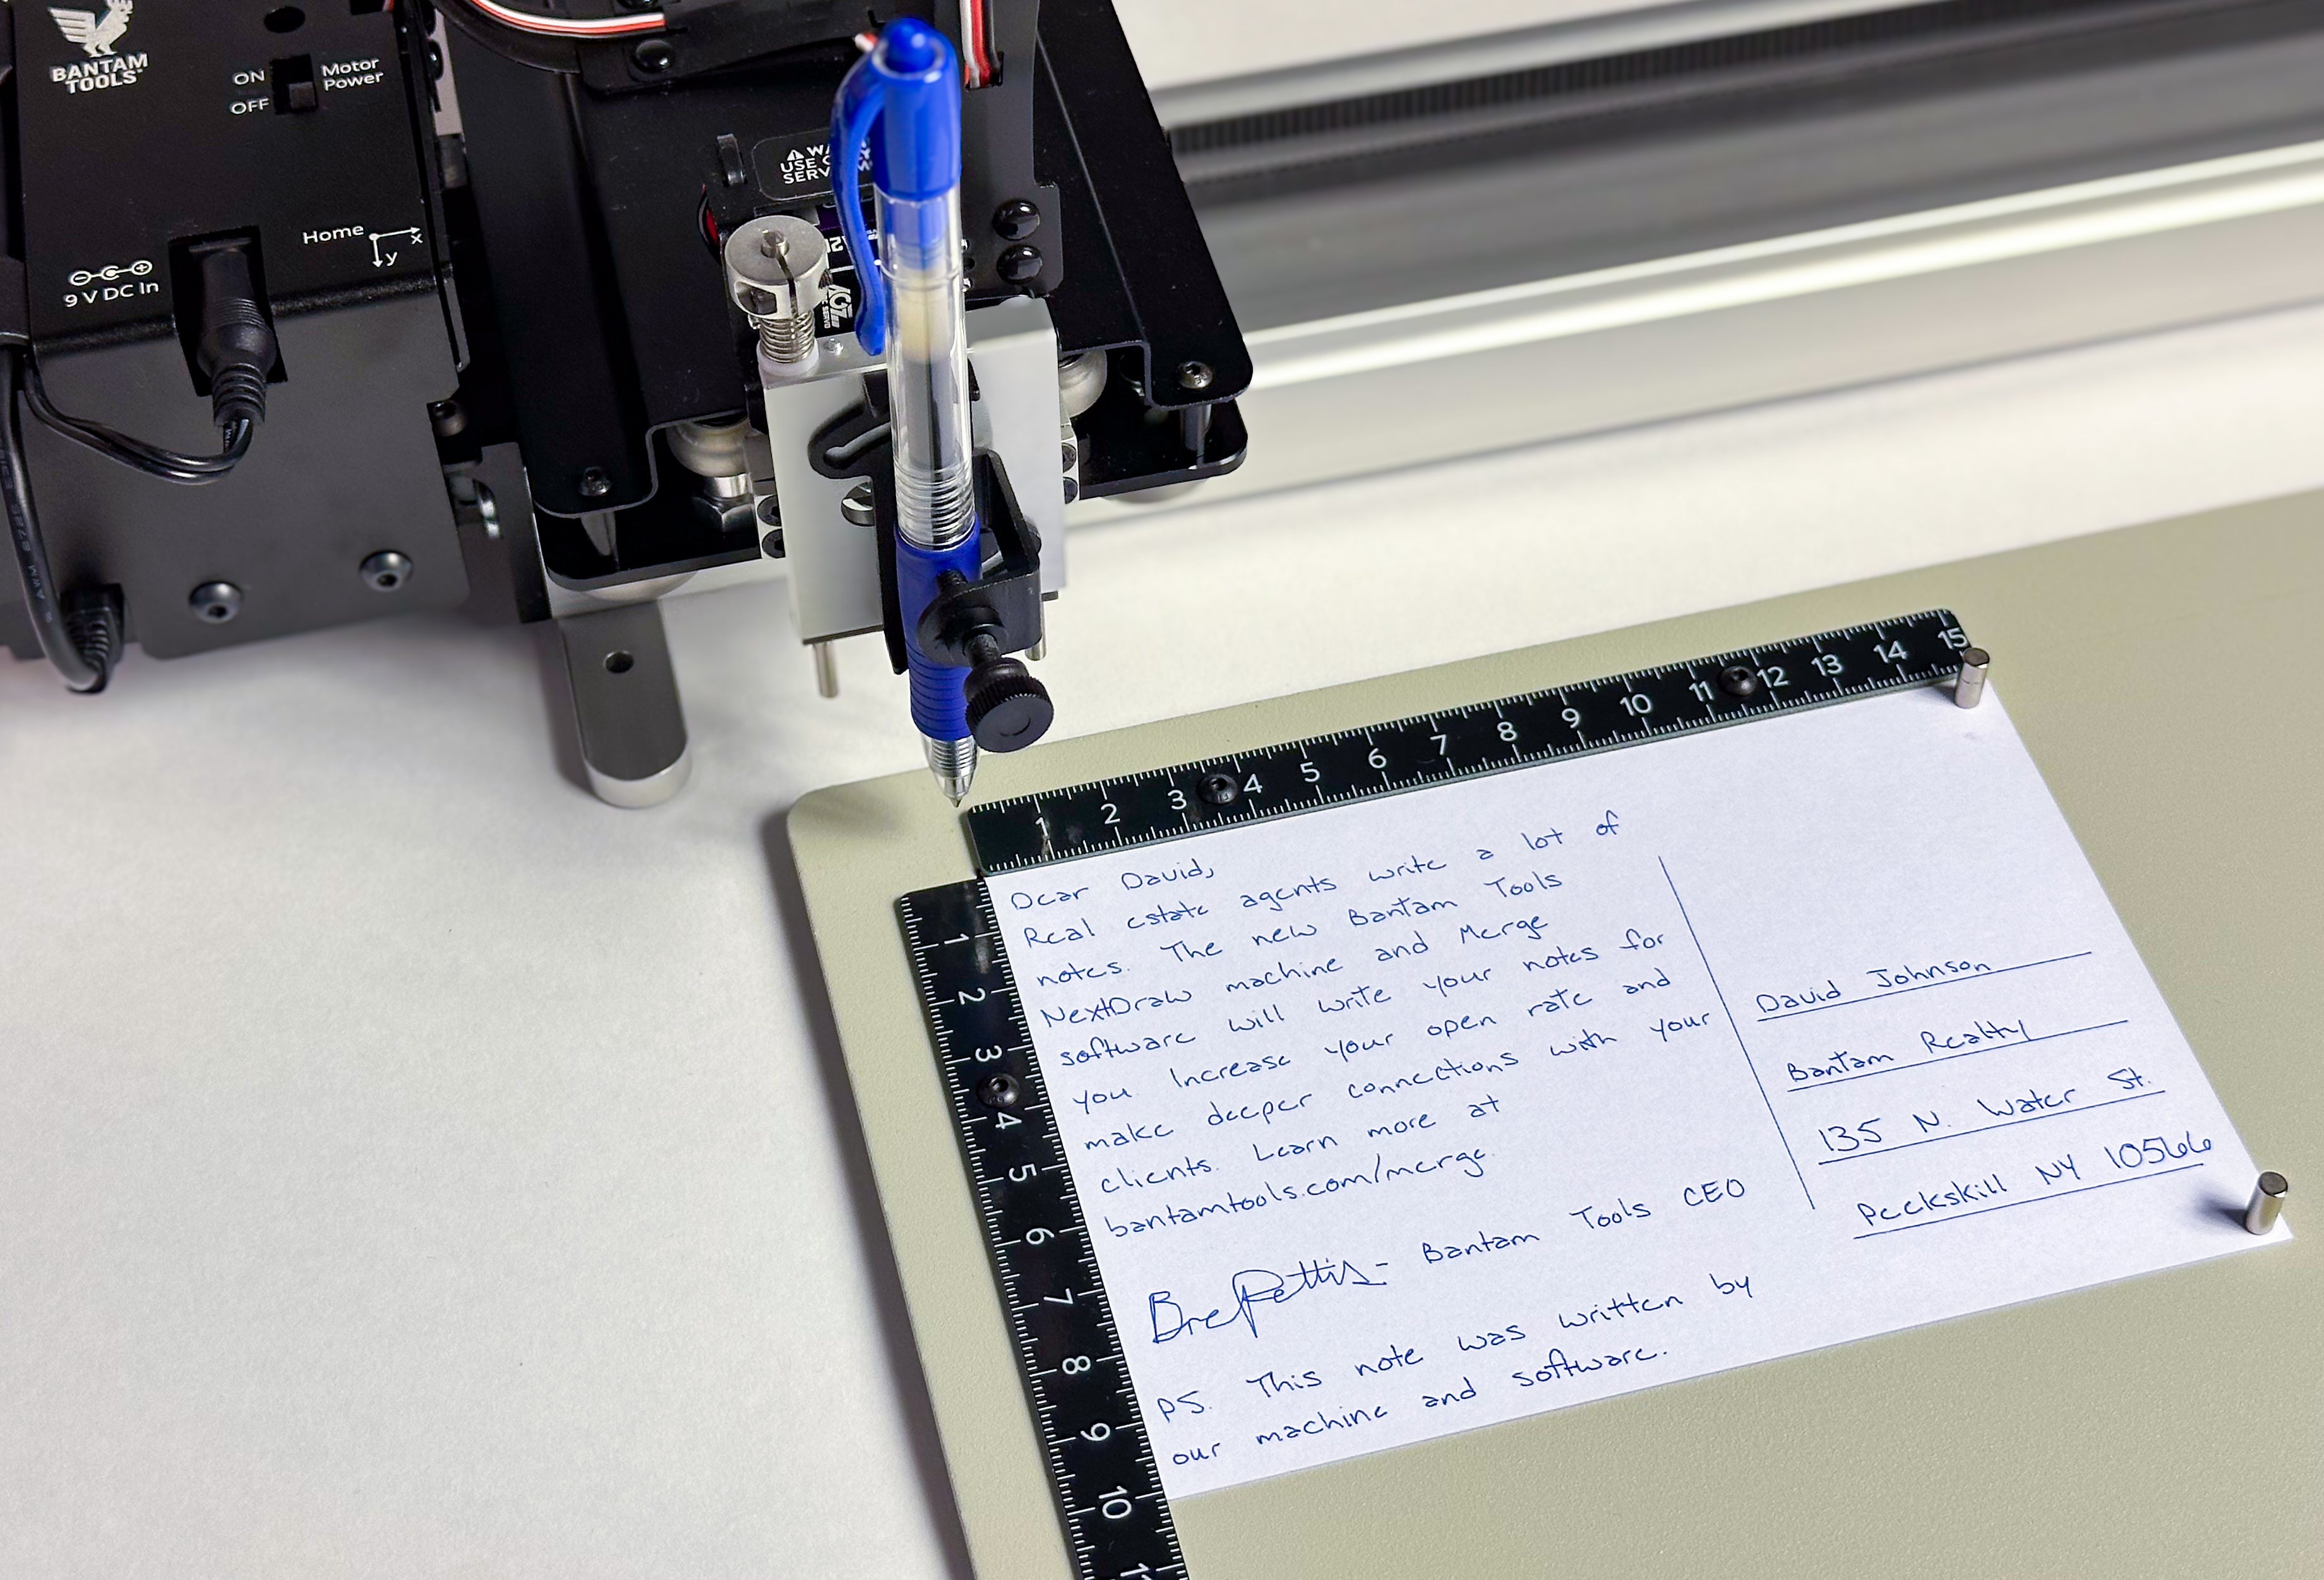 BANTAM
TOOLS
ON
OFF
Motor
Power
USE
SERV
Home
x
y
9 V DC In
1 2 3 4 5 6 7 8 9 10 11 12 13 14 15
1
2
3
4
5
6
7
8
9
10
Dear David,
Real estate agents write a lot of
notes. The new Bantam Tools
NextDraw machine and Merge
software will write your notes for
you. Increase your open rate and
make deeper connections with your
clients. Learn more at
bantamtools.com/merge.
Bre Pettis - Bantam Tools CEO
PS. This note was written by
our machine and software.
David Johnson
Bantam Realty
135 N. Water St.
Peekskill NY 10566